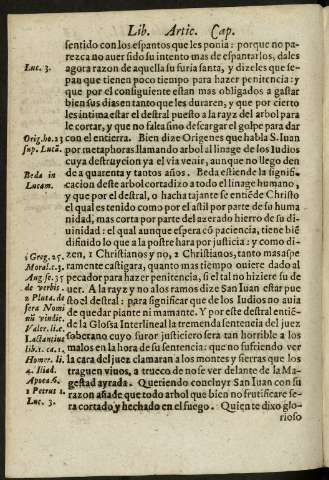 Lib. Artic. Cap.
sentido con los espantos que les ponia: porque no pa-
rezca no auer sido su intento mas de espantarlos, dales
Luc. 3.
agora razon de aquella su furia santa, y dizeles que se-
pan que tienen poco tiempo para hazer penitencia: y
que por el consiguiente estan mas obligados a gastar
bien sus dias en tanto que les duraren, y que por cierto
les intima estar el destral puesto a la rayz del arbol para
le cortar, y que no falta sino descargar el golpe para dar
Orig. ho. 23
sup. Lucã.
con el en tierra. Bien dize Origenes que habla S. Iuan
por metaphoras llamando arbol al linage de los Iudios
cuya destruycion ya el via venir, aunque no llego den
Beda in
Lucam.
de a quarenta y tantos años. Beda estiende la signifi-
cacion deste arbol cortadizo a todo el linage humano,
y que por el destral, o hacha tajante se entiẽde Christo
el qual es tenido como por el astil por parte de su huma
nidad, mas corta por parte del azerado hierro de su di-
uinidad: el qual aunque espera cõ paciencia, tiene biẽ
difinido lo que a la postre hara por justicia: y como di-
1 Greg. 25.
Moral. c. 3.
Aug. se. 35
de verbis.
2 Plata. de
sera Nomi
nũ vindic.
Valer. li. 1. c
Lactantius
lib. 1. ca. 1.
Homer. li.
4. Iliad.
Apoca. 6.
2 Petrus 1.
Luc. 3.
zen, 1 Christianos y no, 2 Christianos, tanto mas aspe
ramente castigara, quanto mas tiempo ouiere dado al
pecador para hazer penitencia, si el tal no hiziere su de
uer. A la rayz y no a los ramos dize San Iuan estar pue
sto el destral: para significar que de los Iudios no auia
de quedar piante ni mamante. Y por este destral entiẽ-
de la Glossa Interlineal la tremenda sentencia del juez
soberano cuyo furor justiciero sera tan horrible a los
malos en la hora de su sentencia: que no sufriendo ver
la cara del juez clamaran a los montes y sierras que los
traguen viuos, a trueco de no se ver delante de la Ma-
gestad ayrada. Queriendo concluyr San Iuan con su
razon añade que todo arbol que bien no frutificare se-
ra cortado y hechado en el fuego. Quien te dixo glo-
rioso